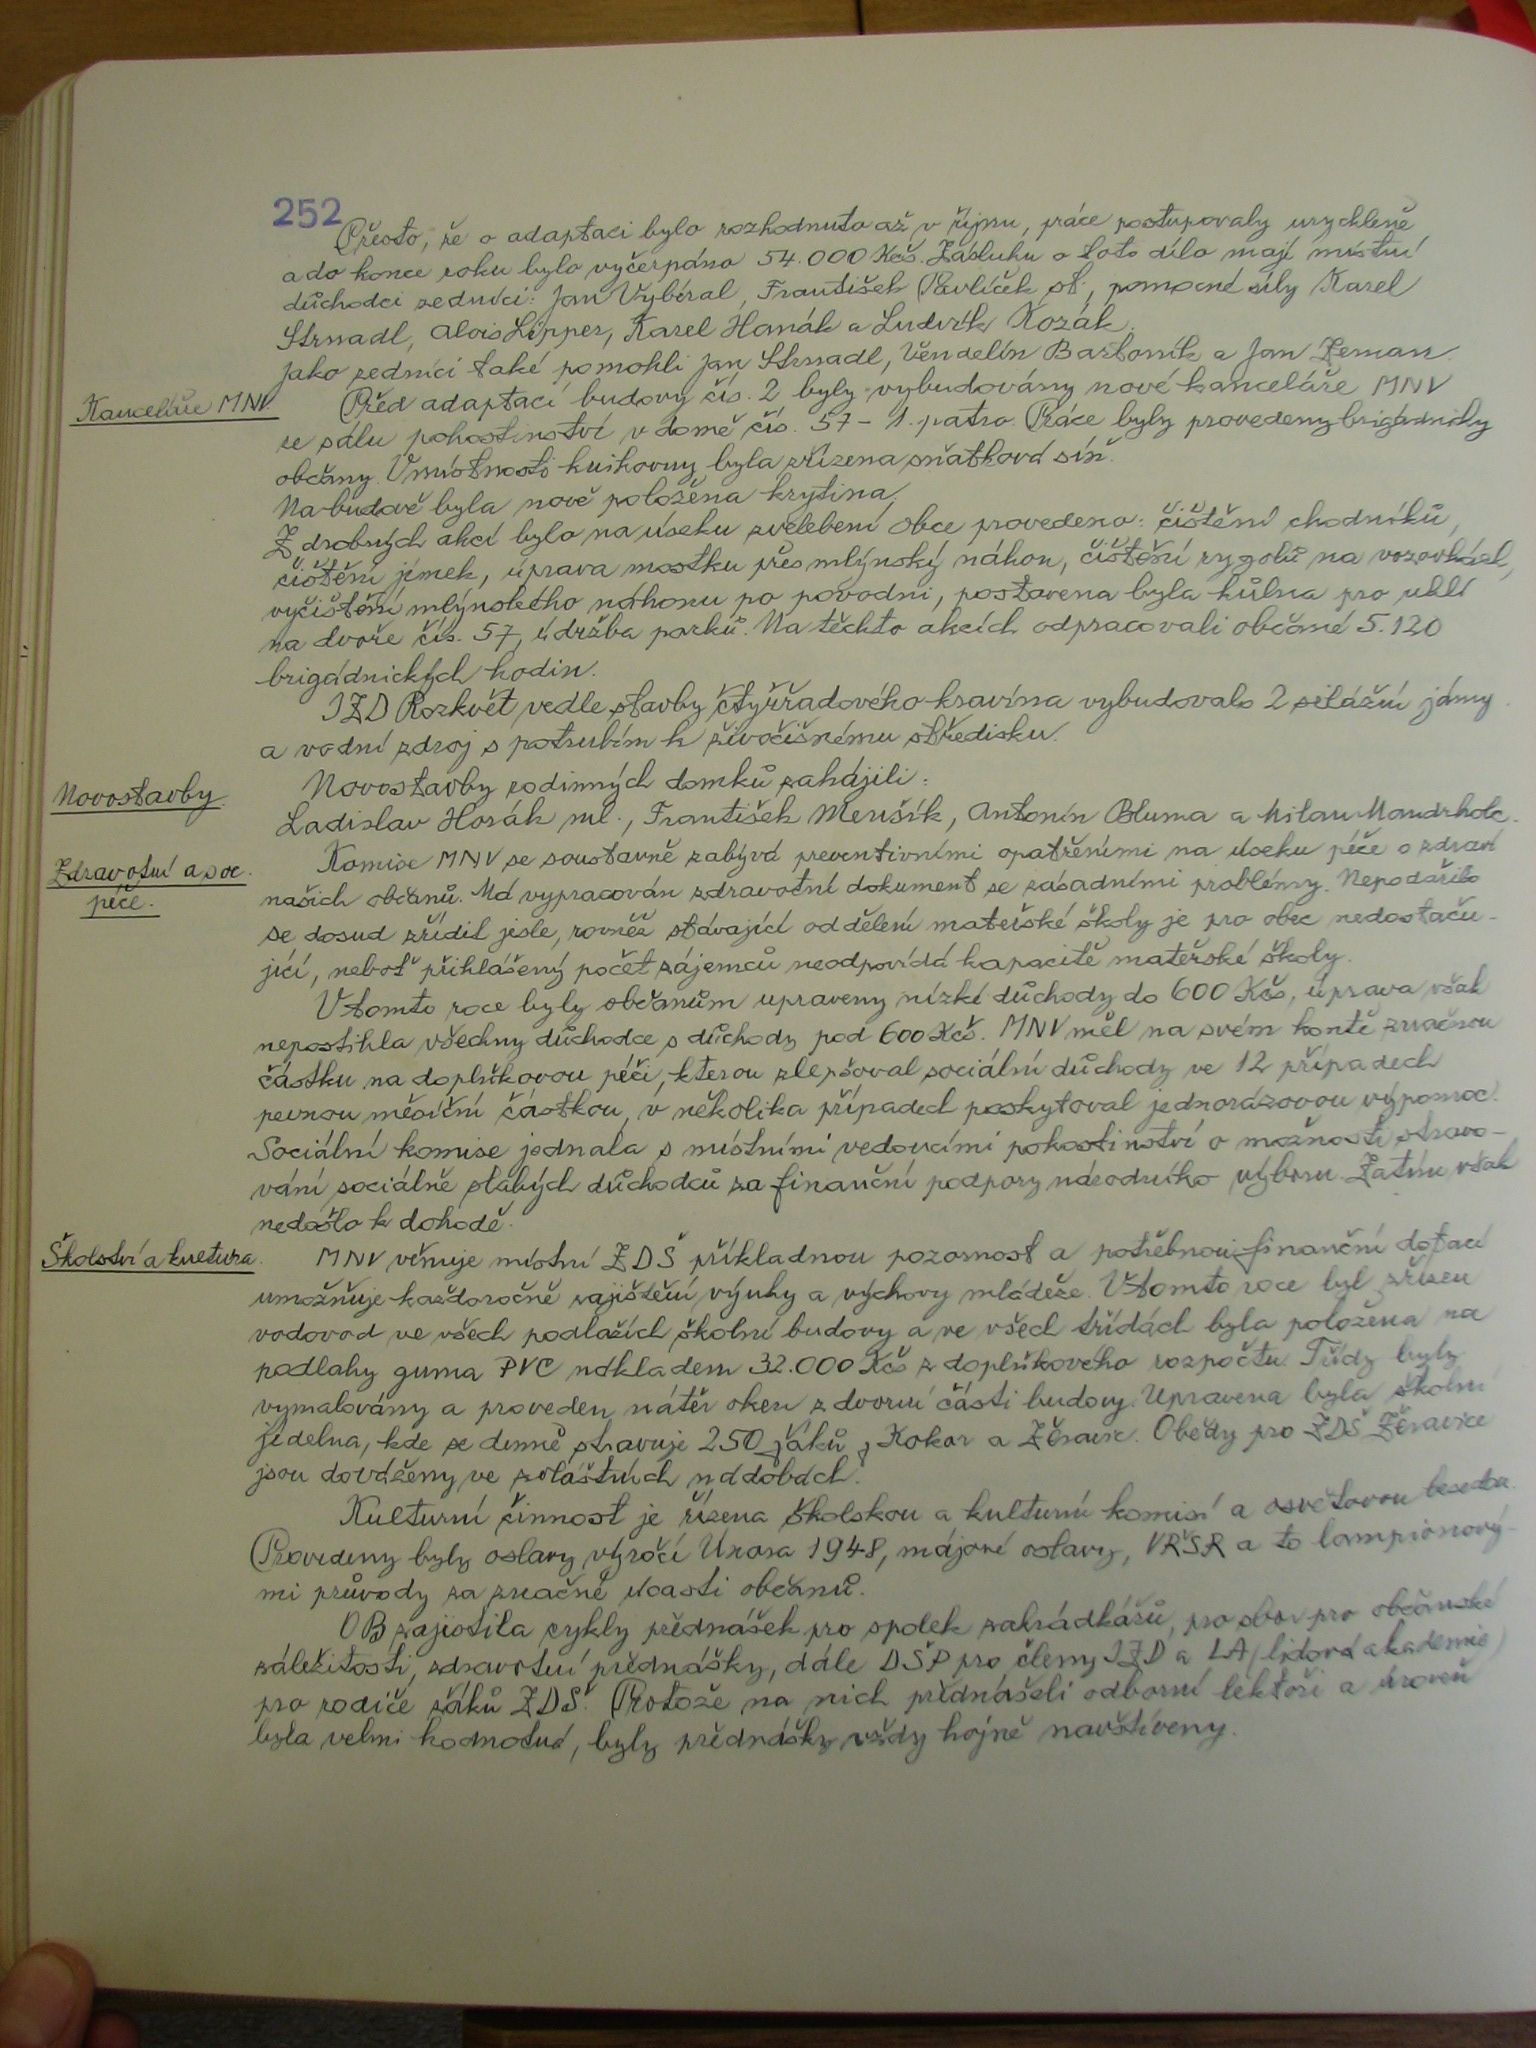 252
Přesto, že o adaptaci bylo rozhodnuto až v říjnu, práce postupovaly urychleně
a do konce roku bylo vyčerpáno 54.000 Kčs. Zásluhu o toto dílo mají místní
důchodci zedníci: Jan Vybíral, František Pavlíček st., pomocné síly Karel
Strnadl, Alois Lipper, Karel Hanák a Ludvík Kozák.
Jako zedníci také pomohli Jan Strnadl, Vendelín Bartoník a Jan Zeman.
Kanceláře MNV
Před adaptací budovy čís. 2 byly vybudovány nové kanceláře MNV
ze sálu pohostinství v domě čís. 57 - 1. patro. Práce byly provedeny brigádnicky
občany. V místnosti knihovny byla zřízena sňatková síň.
Na budově byla nově položena krytina.
Z drobných akcí bylo na úseku zvelebení obce provedeno: čištění chodníků,
čištění jímek, úprava mostku přes mlýnský náhon, čištění rygolů na vozovkách,
vyčištění mlýnského náhonu po povodni, postavena byla kůlna pro uhlí
na dvoře čís. 57, údržba parků. Na těchto akcích odpracovali občané 5.120
brigádnických hodin.
JZD Rozkvět vedle stavby čtyřřadového kravína vybudovalo 2 silážní jámy
a vodní zdroj s potrubím k živočišnému středisku.
Novostavby
Novostavby rodinných domků zahájili:
Ladislav Horák ml., František Menšík, Antonín Bluma a Milan Mandrholc.
Zdravotní a soc.
péče.
Komise MNV se soustavně zabývá preventivními opatřeními na úseku péče o zdraví
našich občanů. Má vypracován zdravotní dokument se zásadními problémy. Nepodařilo
se dosud zřídit jesle, rovněž stávající oddělení mateřské školy je pro obec nedostaču-
jící, neboť přihlášený počet zájemců neodpovídá kapacitě mateřské školy.
V tomto roce byly občanům upraveny nízké důchody do 600 Kčs, úprava však
nepostihla všechny důchodce s důchody pod 600 Kčs. MNV měl na svém kontě značnou
částku na doplňkovou péči, kterou zlepšoval sociální důchody ve 12 případech
pevnou měsíční částkou, v několika případech poskytoval jednorázovou výpomoc.
Sociální komise jednala s místními vedoucími pohostinství o možnosti stravo-
vání sociálně slabých důchodců za finanční podpory národního výboru. Zatím však
nedošlo k dohodě.
Školství a kultura.
MNV věnuje místní ZDŠ příkladnou pozornost a potřebnou finanční dotací
umožňuje každoročně zajištění výuky a výchovy mládeže. V tomto roce byl zřízen
vodovod ve všech podlažích školní budovy a ve všech třídách byla položena na
podlahy guma PVC nákladem 32.000 Kčs z doplňkového rozpočtu. Třídy byly
vymalovány a proveden nátěr oken z dvorní části budovy. Upravena byla školní
jídelna, kde se denně stravuje 250 žáků z Kokor a Žeravic. Obědy pro ZDŠ Žeravice
jsou dováženy ve zvláštních nádobách.
Kulturní činnost je řízena školskou a kulturní komisí a osvětovou besedou.
Provedeny byly oslavy výročí Února 1948, májové oslavy, VŘSR a to lampionový-
mi průvody za značné účasti občanů.
OB zajistila cykly přednášek pro spolek zahrádkářů, pro sbor pro občanské
záležitosti, zdravotní přednášky, dále DŠP pro členy JZD a LA (lidová akademie)
pro rodiče žáků ZDŠ. Protože na nich přednášeli odborní lektoři a úroveň
byla velmi hodnotná, byly přednášky vždy hojně navštíveny.